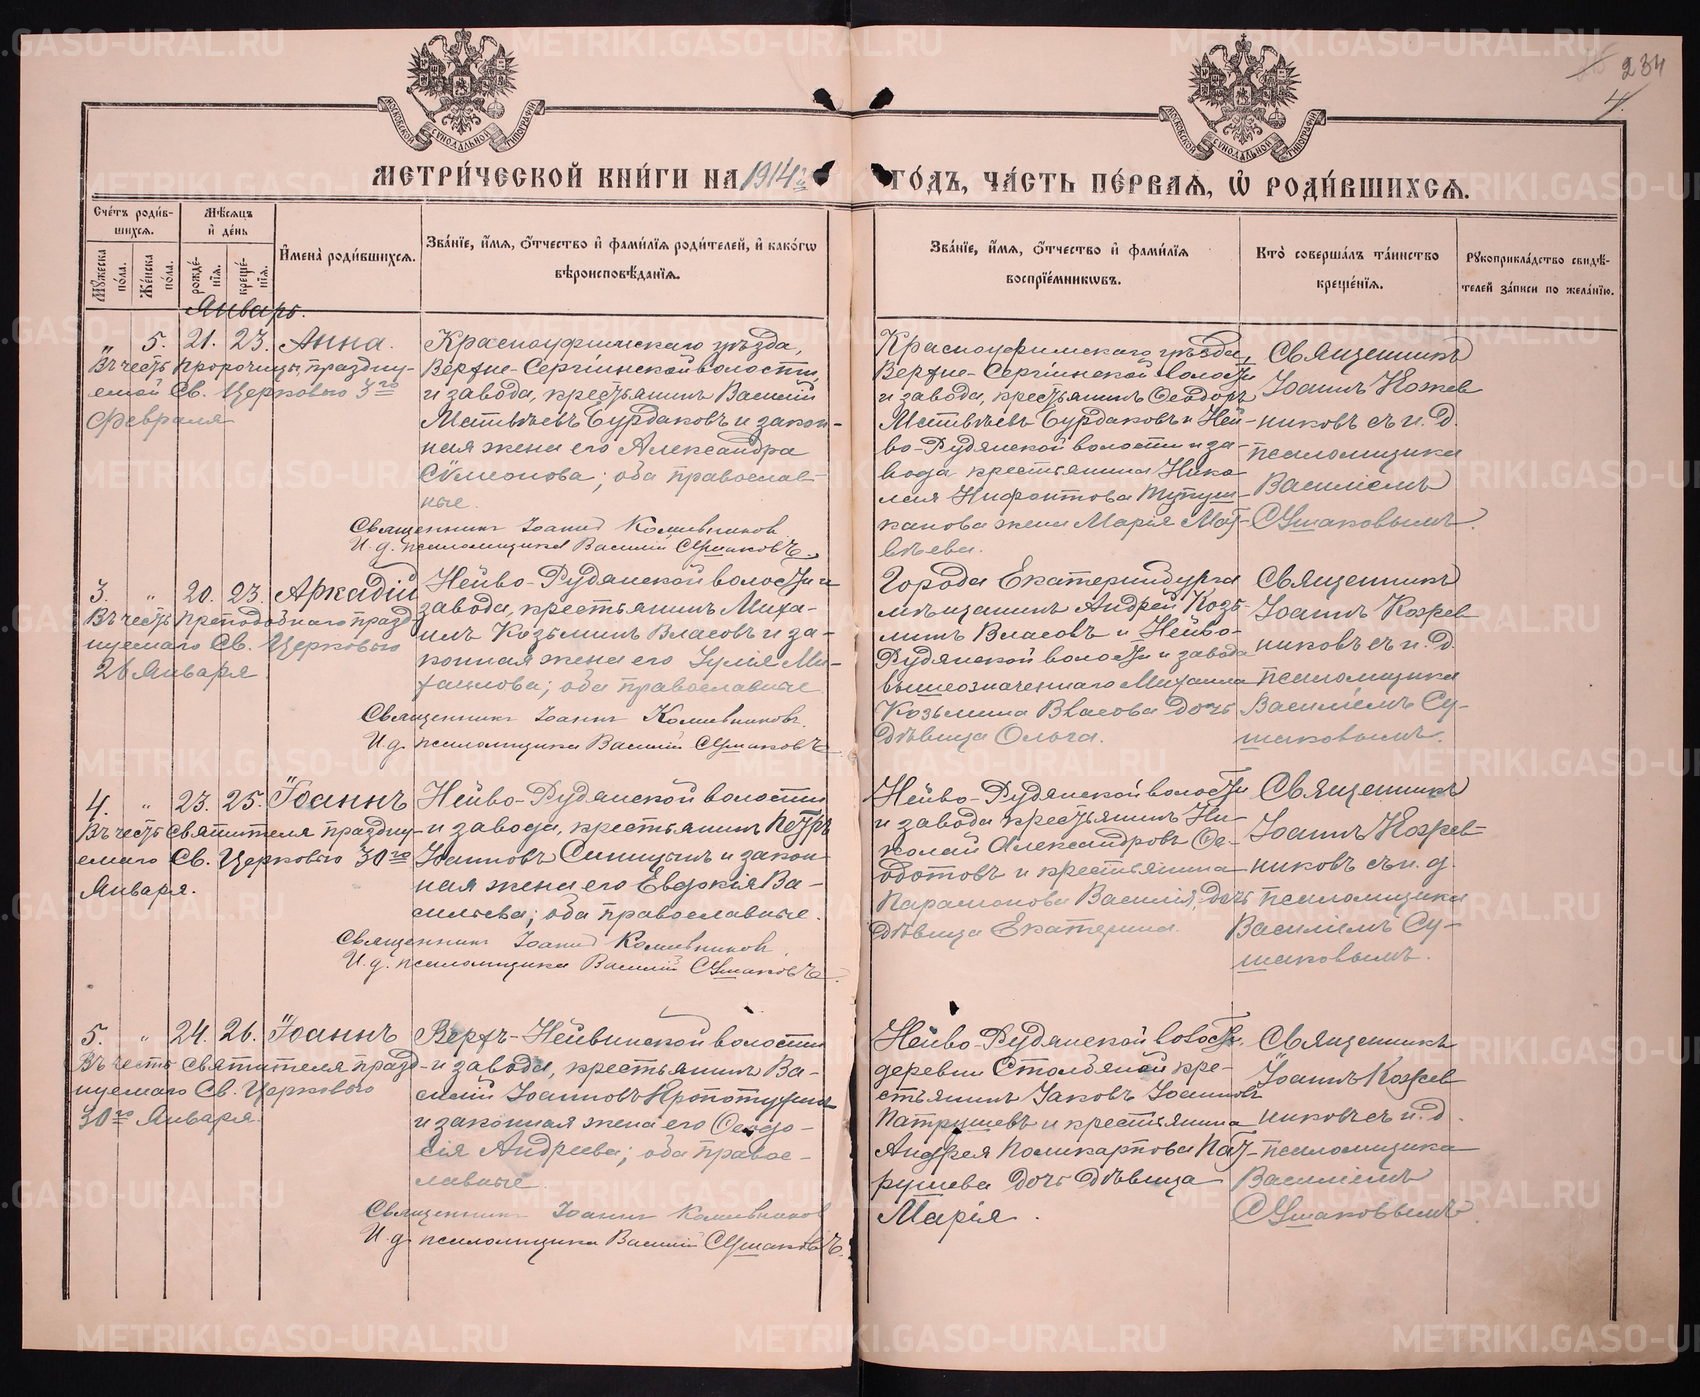 234
4.
МОСКОВСКОЙ СѴНОДАЛЬНОЙ ТИПОГРАФІИ
МОСКОВСКОЙ СѴНОДАЛЬНОЙ ТИПОГРАФІИ
МЕТРИ́ЧЕСКОЙ КНИ́ГИ НА 1914й
ГО́ДЪ, ЧА́СТЬ ПЕ́РВАѦ, Ѡ҆ РОДИ́ВШИХСѦ.
Сче́тъ роди́в-
шихсѧ.
Мꙋ́жеска по́ла.
Же́нска по́ла.
Мѣ́сѧцъ
и҆ де́нь
рожде́-
нїѧ.
креще́-
нїѧ.
И҆мена̀ роди́вшихсѧ.
Зва́нїе, и҆́мѧ, ѻ҆́тчество и҆ фами́лїѧ роди́телей, и҆ како́гѡ
вѣроисповѣ́данїѧ.
Зва́нїе, и҆́мѧ, ѻ҆́тчество и҆ фами́лїѧ
воспрїе́мникѡвъ.
Кто̀ соверша́лъ та́инство
креще́нїѧ.
Рꙋкоприкла́дство свидѣ́-
телей за́писи по жела́нїю.
Январь.
" 5. 21. 23. Анна.
Въ честь пророчицы, праздну-
емой Св. Церковью 3го
февраля
Красноуфимскаго уѣзда,
Верхне-Сергинской волости
и завода, крестьянинъ Василій
Матвѣевъ Бурдаковъ и закон-
ная жена его Александра
Сѵмеонова; оба православ-
ные.
Священникъ Іоаннъ Кожевниковъ
И. д. псаломщика Василій Сушаковъ.
Красноуфимскаго уѣзда,
Верхне-Сергинской волости
и завода, крестьянинъ Ѳеодоръ
Матвѣевъ Бурдаковъ и Ней-
во-Рудянской волости и за-
вода крестьянина Нико-
лая Нифонтова
канова жена Марія Мат-
вѣева.
Священникъ
Іоаннъ Кожев
никовъ съ и. д.
псаломщика
Василіемъ
Сушаковымъ.
3. " 20. 23. Аркадій
Въ честь преподобнаго празд-
нуемаго Св. Церковью
26 Января
Нейво-Рудянской волости и
завода, крестьянинъ Миха-
илъ Козьминъ Власовъ и за-
конная жена его Іулія Ми-
хайлова; оба православные
Священникъ Іоаннъ Кожевниковъ.
И. д. псаломщика Василій Сушаковъ
Города Екатеринбурга
мѣщанинъ Андрей Козь-
минъ Власовъ и Нейво-
Рудянской волости и завода
вышеозначеннаго Михаила
Козьмина Власова дочь
дѣвица Ольга.
Священникъ
Іоаннъ Кожев
никовъ съ и. д.
псаломщика
Василіемъ Су-
шаковымъ.
4. " 23. 25. Іоаннъ
Въ честь святителя праздну-
емаго Св. Церковью 30го
Января.
Нейво-Рудянской волости
и завода, крестьянинъ Петръ
Іоанновъ Синицынъ и закон-
ная жена его Евдокія Ва-
сильева; оба православные.
Священникъ Іоаннъ Кожевниковъ.
И. д. псаломщика Василій Сушаковъ
Нейво-Рудянской волости
и завода крестьянинъ Ни-
колай Александровъ Ѳе-
дотовъ и крестьянина
Парамонова Василія, дочь
дѣвица Екатерина.
Священникъ
Іоаннъ Кожев-
никовъ съ и. д.
псаломщика
Василіемъ Су-
шаковымъ.
5. " 24. 26. Іоаннъ
Въ честь святителя празд-
нуемаго Св. Церковью
30го Января.
Верхъ-Нейвинской волости
и завода, крестьянинъ Ва-
силій Іоанновъ
и законная жена его Ѳеодо-
сія Андреева; оба правос-
лавные
Священникъ Іоаннъ Кожевниковъ
И. д. псаломщика Василій Сушаковъ.
Нейво-Рудянской волости.
деревни Столбяной кре-
стьянинъ Іаковъ Іоанновъ
Патрушевъ и крестьянина
Андрея Поликарпова Пат-
рушева дочь дѣвица
Марія.
Священникъ
Іоаннъ Кожев
никовъ съ и. д.
псаломщика
Василіемъ
Сушаковымъ
METRIKI.GASO-URAL.RU